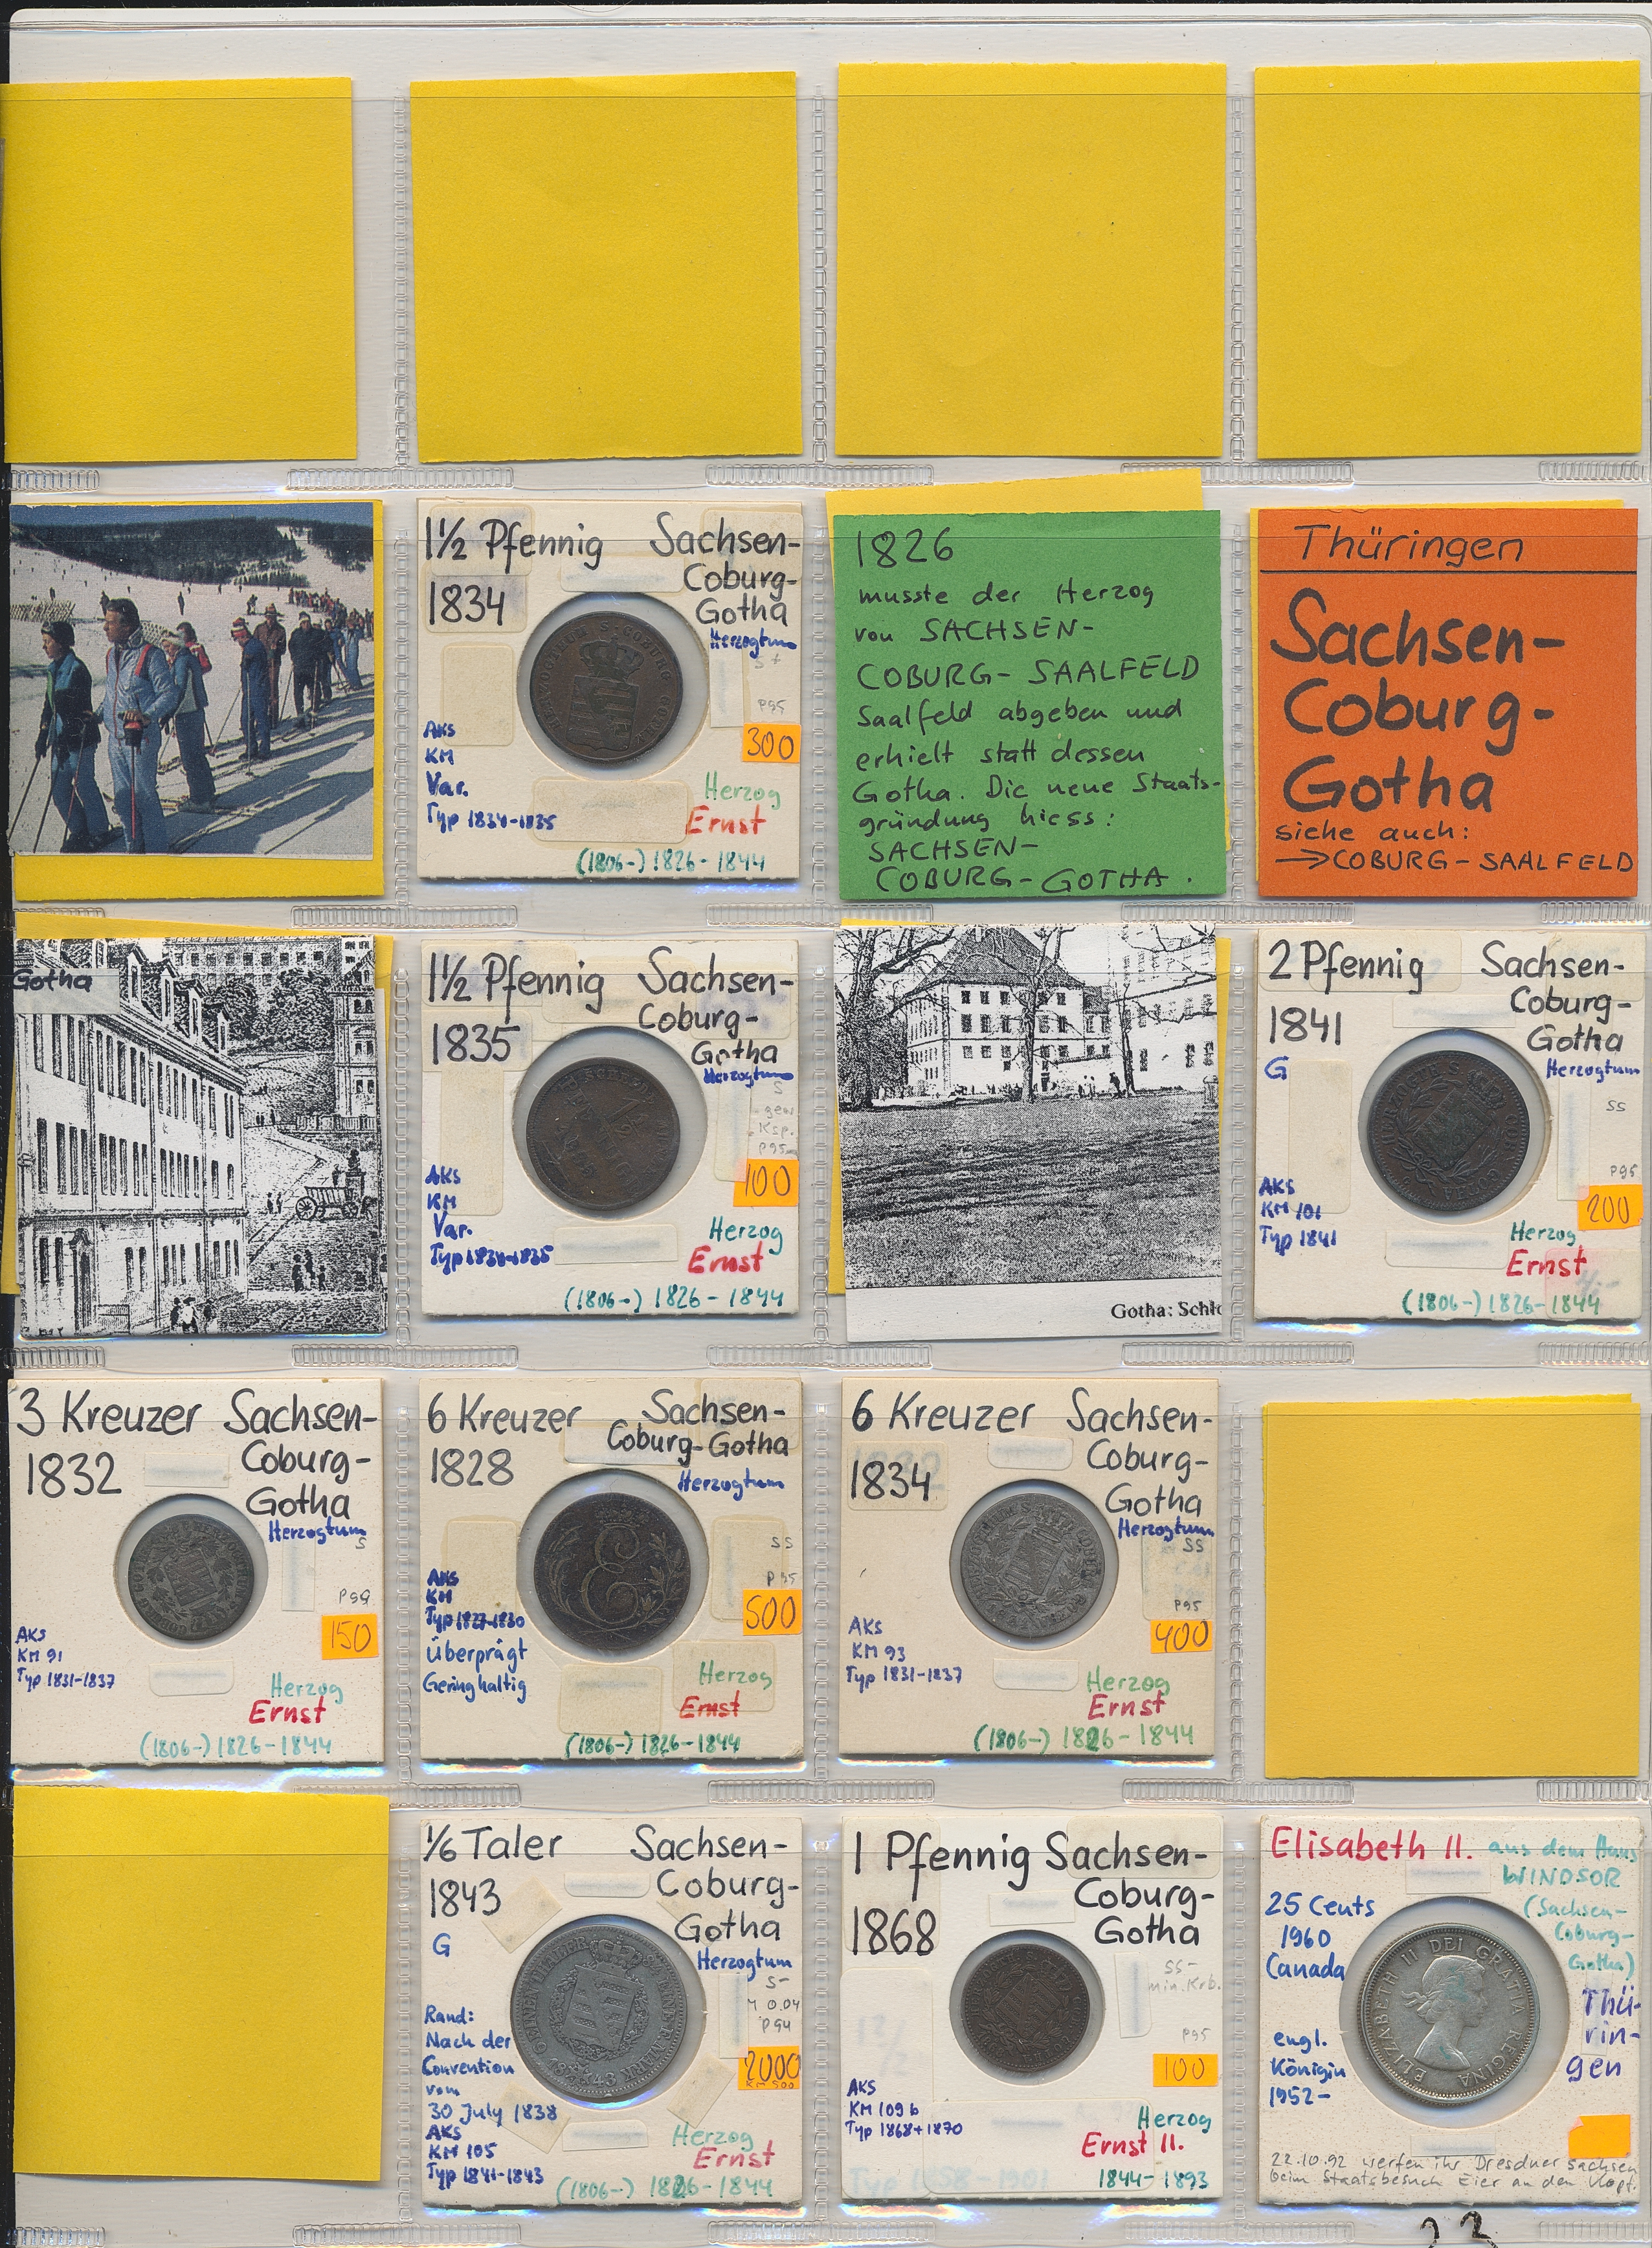 1½ Pfennig Sachsen-
Coburg-
1834 Gotha
Herzogtum
S+
P95
300
AKS
KM
Var.
Typ 1834-1835
Herzog
Ernst
(1806-) 1826-1844
1826
musste der Herzog
von SACHSEN-
COBURG-SAALFELD
Saalfeld abgeben und
erhielt statt dessen
Gotha. Die neue Staats-
gründung hiess:
SACHSEN-
COBURG-GOTHA.
Thüringen
Sachsen-
Coburg-
Gotha
siehe auch:
→COBURG-SAALFELD
Gotha
1½ Pfennig Sachsen-
Coburg-
1835 Gotha
Herzogtum
S
Ksp.
P95
100
AKS
KM
Var.
Typ 1834-1835
Herzog
Ernst
(1806-) 1826-1844
Gotha: Schlo
2 Pfennig Sachsen-
Coburg-
1841 Gotha
G Herzogtum
SS
P95
200
AKS
KM 101
Typ 1841
Herzog
Ernst
(1806-) 1826-1844
3 Kreuzer Sachsen-
1832 Coburg-
Gotha
Herzogtum
S
150
AKS
KM 91
Typ 1831-1837
Herzog
Ernst
(1806-) 1826-1844
6 Kreuzer Sachsen-
Coburg-Gotha
1828
Herzogtum
SS
P95
500
AKS
KM
Typ 1827-1830
Überprägt
Geringhaltig
E
Herzog
Ernst
(1806-) 1826-1844
6 Kreuzer Sachsen-
1834 Coburg-
Gotha
Herzogtum
SS
P95
400
AKS
KM 93
Typ 1831-1837
Herzog
Ernst
(1806-) 1826-1844
1/6 Taler Sachsen-
1843 Coburg-
Gotha
G Herzogtum
S-
M 0.04
P94
2000
KM 500
Rand:
Nach der
Convention
vom
30 July 1838
AKS
KM 105
Typ 1841-1843
Herzog
Ernst
(1806-) 1826-1844
1 Pfennig Sachsen-
Coburg-
1868 Gotha
SS-
min. Krb.
P95
100
AKS
KM 109 b
Typ 1868+1870
Herzog
Ernst II.
1844-1893
Elisabeth II. aus dem Haus
WINDSOR
25 Cents (Sachsen-
1960 Coburg-
Canada Gotha)
Thü-
rin-
gen
engl.
Königin
1952-
ELIZABETH II DEI GRATIA REGINA
22.10.92 werfen ihr Dresdner Sachsen
beim Staatsbesuch Eier an den Kopf.
23